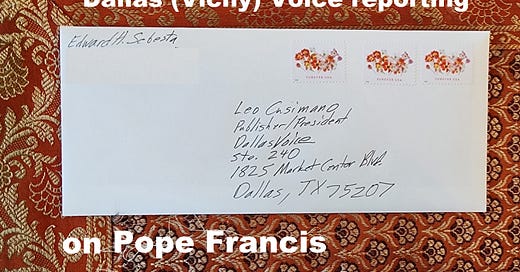 Dallas (Vichy) Voice reporting
Edward H. Sebesta
FOREVER USA FOREVER USA FOREVER USA
Leo Cusimano
Publisher/President
Dallas Voice
Ste. 240
1825 Market Center Blvd
Dallas, TX 75207
on Pope Francis